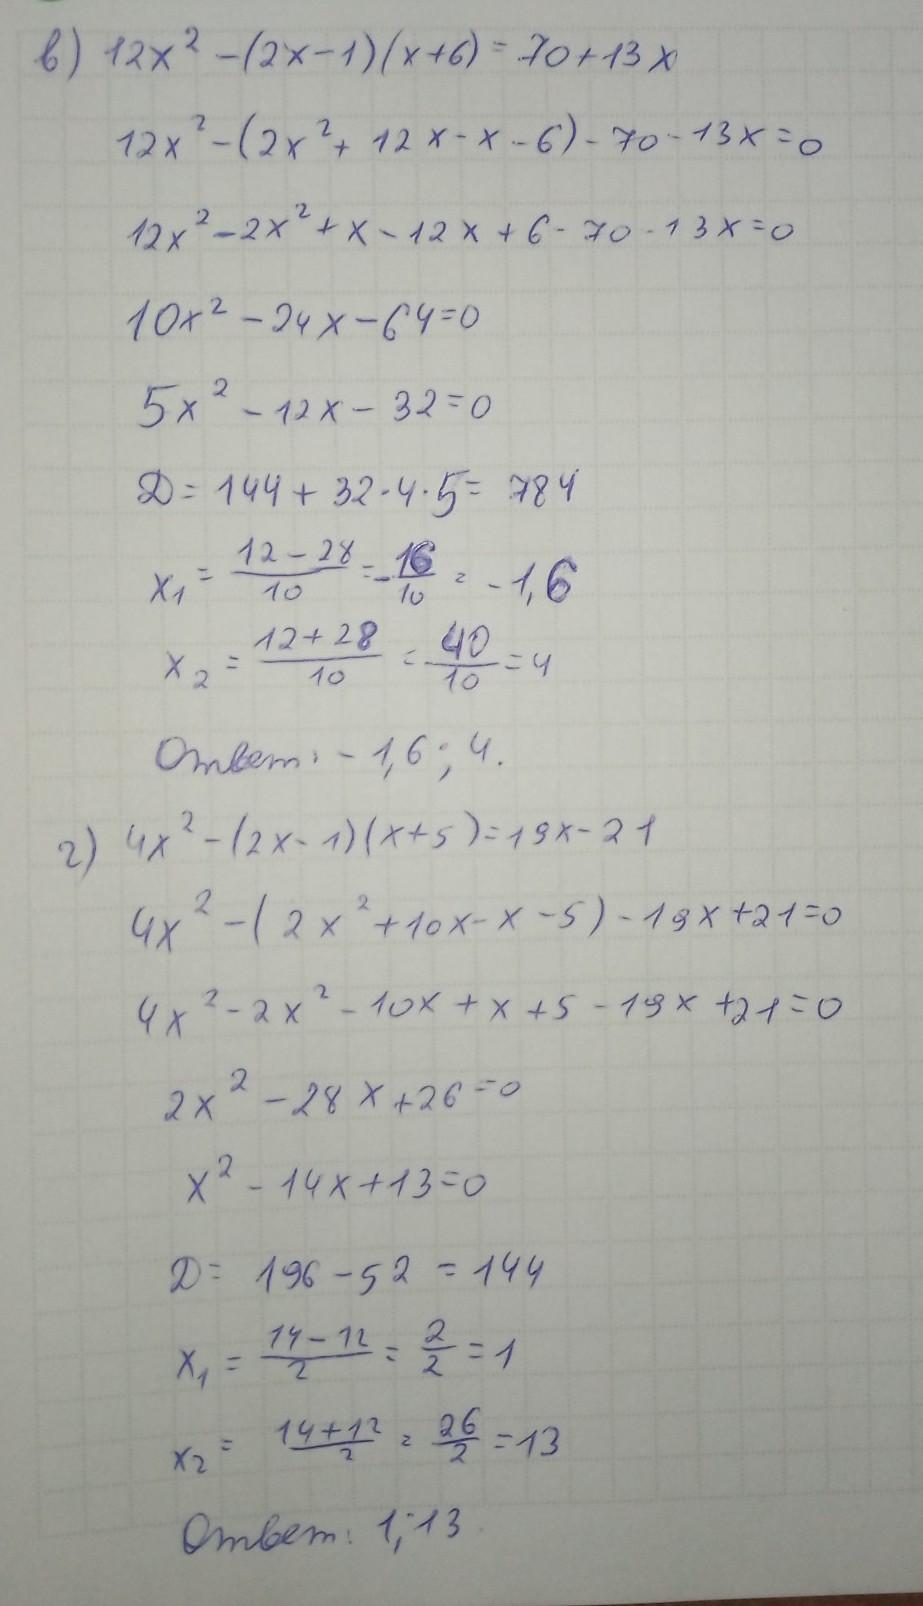 в) 12x² -(2x-1)(x+6)=70+13x
12x² -(2x²+ 12x-x-6)-70-13x=0
12x²-2x²+x-12x+6-70-13x=0
10x²-24x-64=0
5x²-12x-32=0
D=144+32·4·5=784
x₁=(12-28)/10=-16/10=-1,6
x₂=(12+28)/10=40/10=4
Ответ: -1,6; 4.
г) 4x²-(2x-1)(x+5)=19x-21
4x²-(2x²+10x-x-5)-19x+21=0
4x²-2x²-10x+x+5-19x+21=0
2x²-28x+26=0
x²-14x+13=0
D=196-52=144
x₁=(14-12)/2=2/2=1
x₂=(14+12)/2=26/2=13
Ответ: 1; 13.